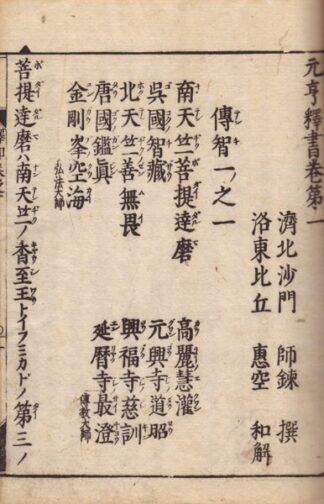 元亨釋書卷第一
濟北沙門 師錬 撰
洛東比丘 惠空 和解
傳智一之一
南天竺菩提達磨 高麗慧灌
吳國智藏 元興寺道昭
北天竺善無畏 興福寺慈訓
唐國鑑眞 延曆寺最澄 傳教大師
金剛峯空海 弘法大師
菩提達磨ハ南天竺ノ香至王トイフミカドノ第三ノ